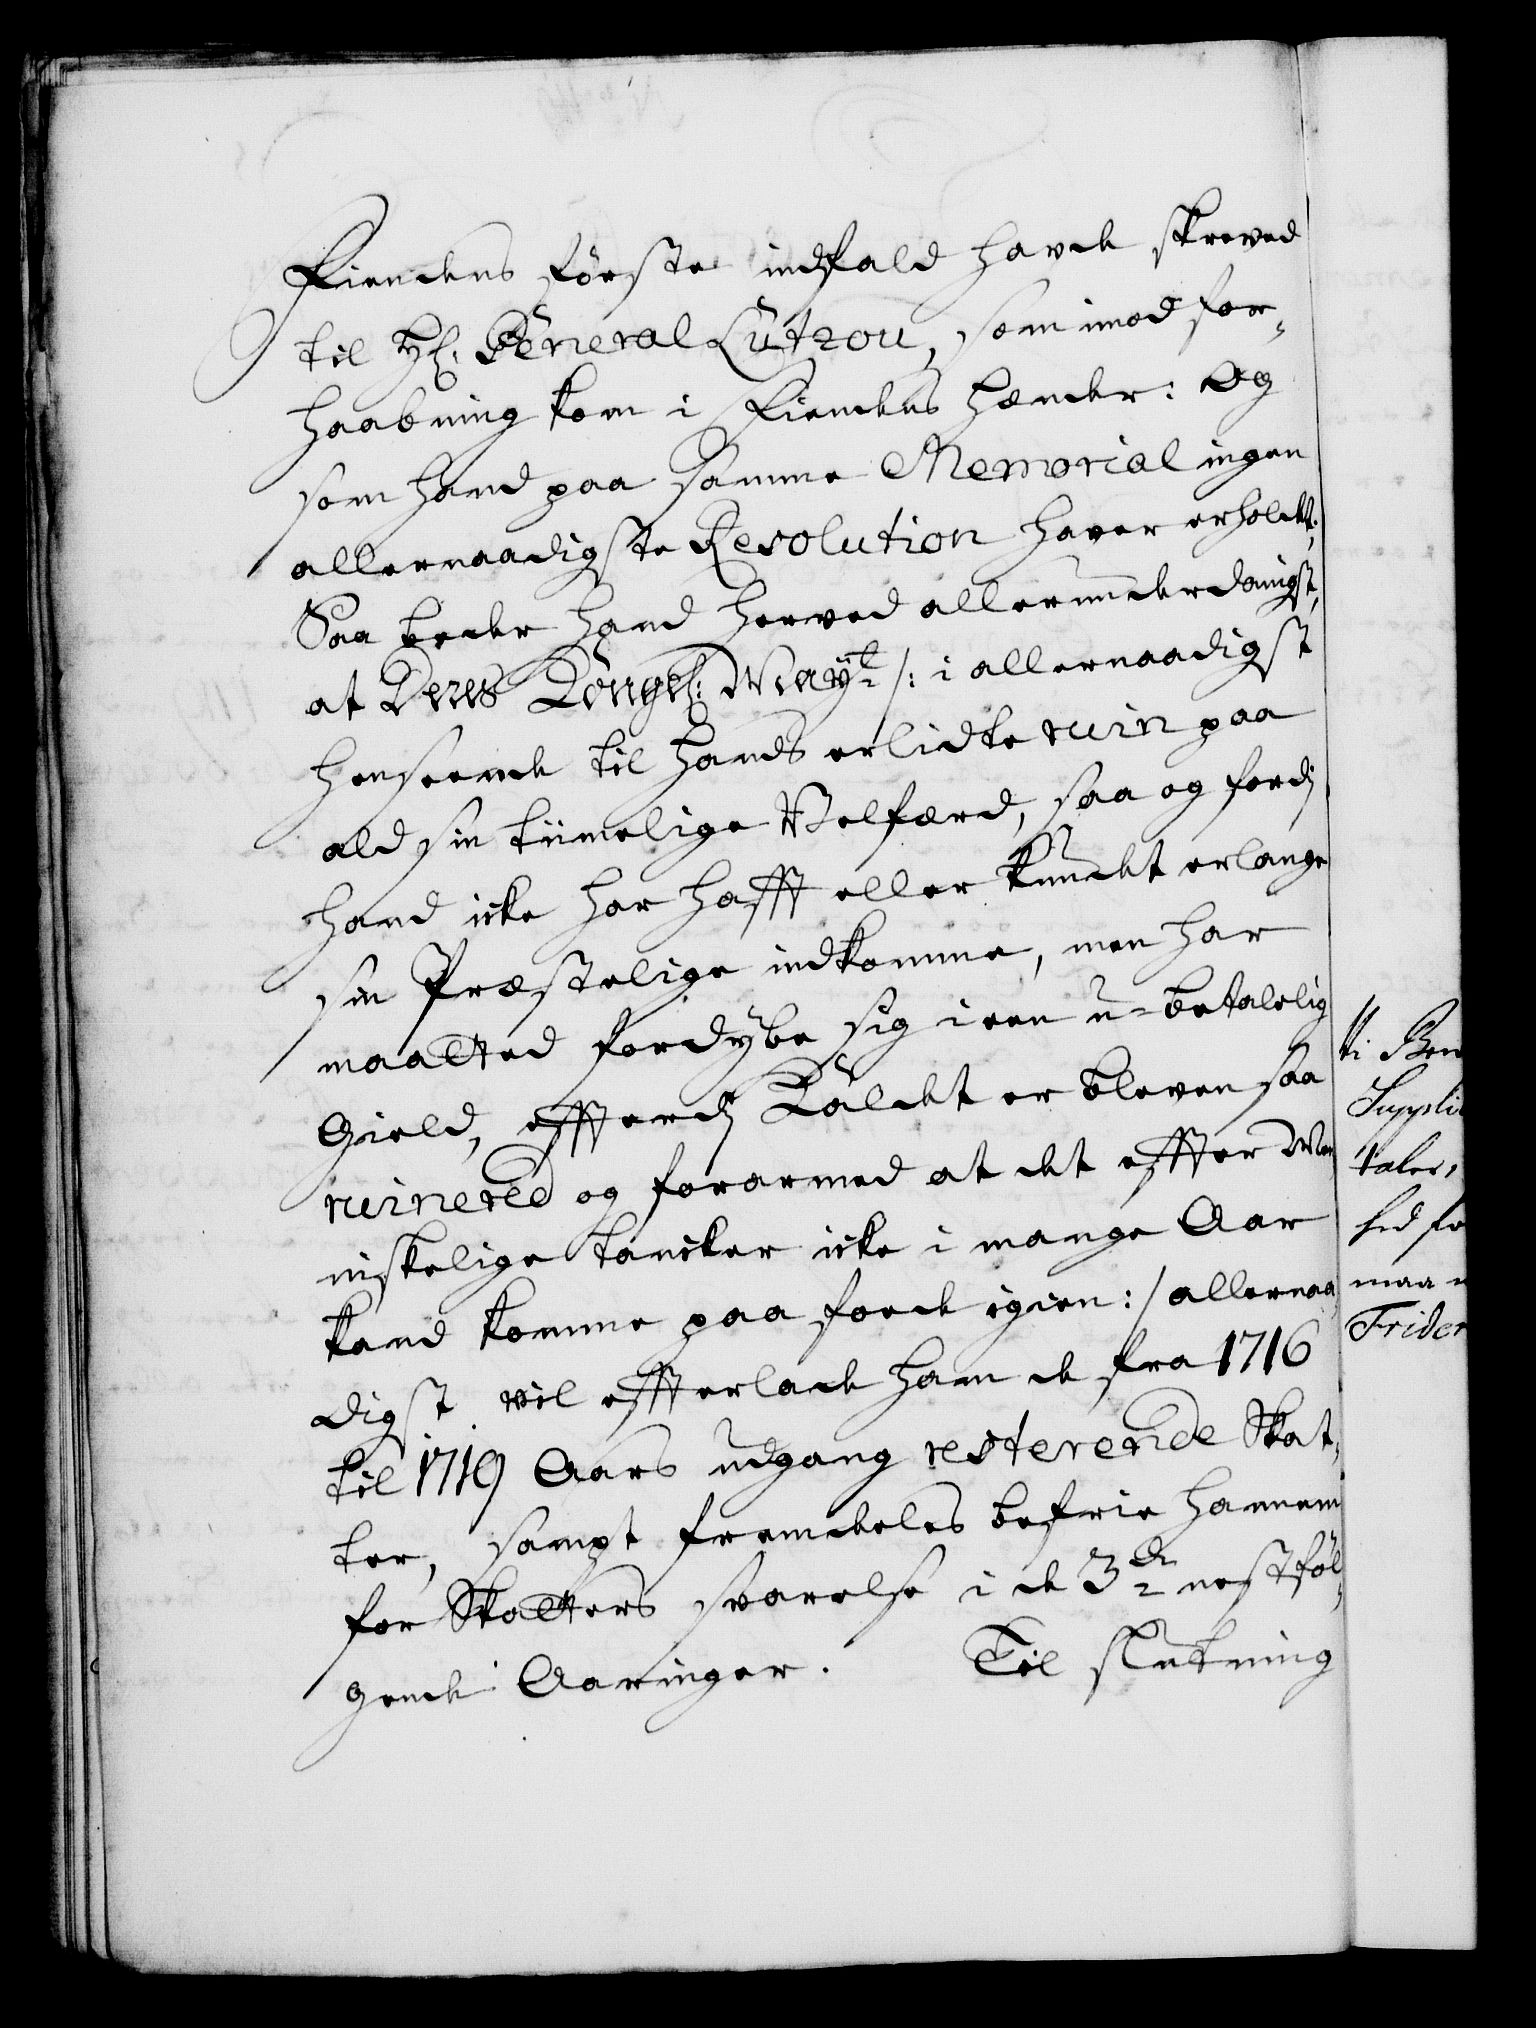 Fiendens förste indfald hafde skreved
til Hr: General Lützou, som imod for-
haabning kom i Fiendens hænder: Og
som hand paa samme Memorial ingen
allernaadigste Resolution haver erholdt;
Saa beder hand herved allerunderdanigst,
at Deres Kongel: May:t /: i allernaadigst
henseende til hands erlidte ruin paa
ald sin tiimelige Velfærd, saa og fordj
hand icke har hafft eller kundet erlange
sin Præstelige indkomme, men har
maatted fordybe sig i een u-betalelig
Gield, effterdj Kaldet er bleven saa
ruinered og forarmed at det effter Men
niskelige tancker icke i mange Aar
kand komme paa foede igien:/ allernaa
digst vil effterlade ham de fra 1716
til 1719 Aars udgang resterende Skat-
ter, sampt fremdeles befrie hannem
for Skatters svarelse i de 3de nest föl-
gende Aaringer. Til slutning
ti
Supplic
taler,
maa
Frider